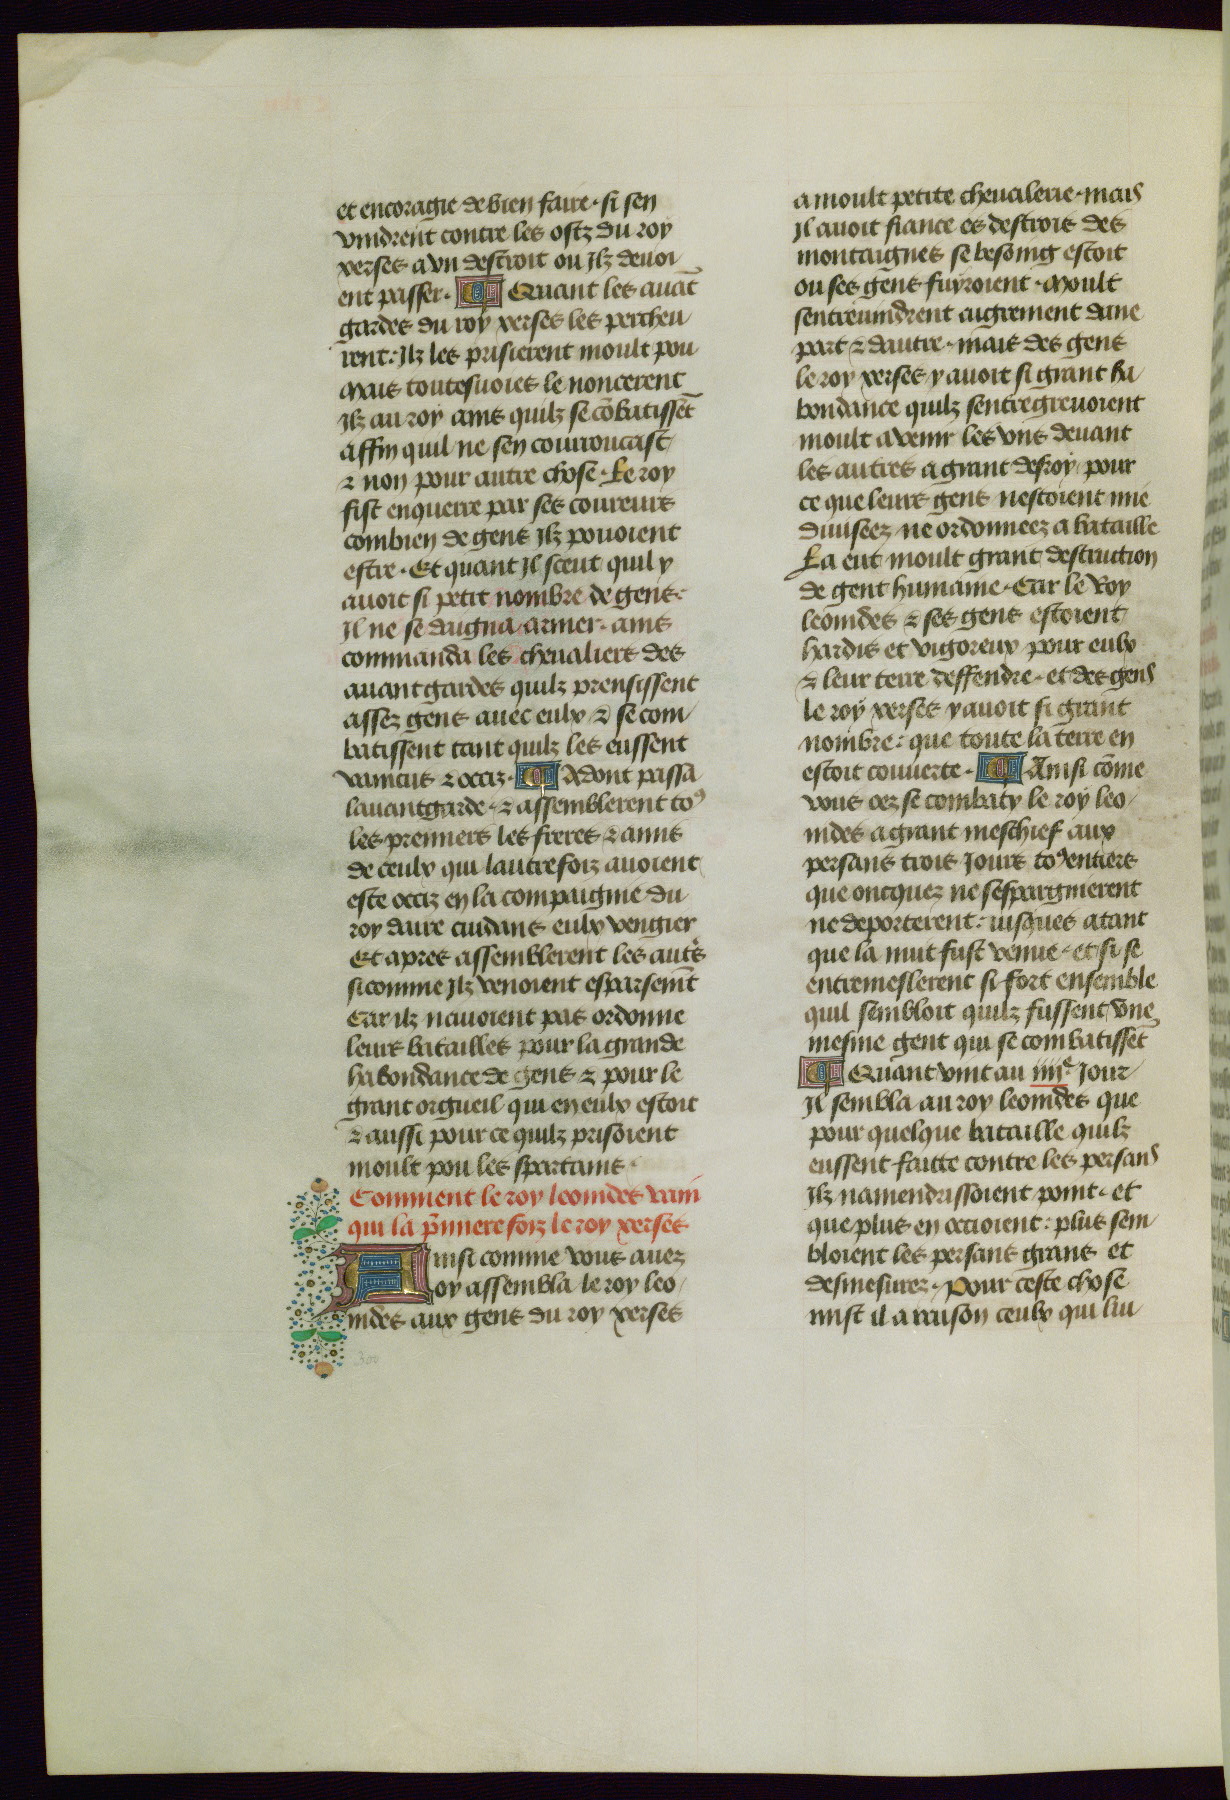 et encoragie de bien faire. si sen
vindrent contre les ostz du roy
xerses a vn destroit ou Ilz deuoi
ent passer. Quant les auāt
gardes du roy xerses les percheu
rent: Ilz les prisierent moult pou
Mais toutesuoies le noncerent
Ilz au roy ains quilz se cōbatissēt
affin quil ne sen courroucast
⁊ non pour autre chose. Le roy
fist enquerre par ses coureurs
combien de gens Ilz pouoient
estre. Et quant Il sceut quil y
auoit si petit nombre de gens.
Il ne se daigna armer. ains
commanda les cheualiers des
auantgardes quilz prensissent
assez gens auec eulx ⁊ se com
batissent tant quilz les eussent
vaincus ⁊ occiz. Adont passa
lauantgarde. ⁊ assemblerent toꝰ
les premiers les freres ⁊ amis
de ceulx qui lautrefoiz auoient
este occiz en la compaignie du
roy daire cuidans eulx vengier
Et apres assemblerent les autrs̄
sicomme Ilz venoient esparsemēt
Car ilz nauoient pas ordonne
leurs batailles pour la grande
habondance de gens ⁊ pour le
grant orgueil qui en eulx estoit
⁊ aussi pour ce quilz prisoient
moult pou les spartains.
Comment le roy leonides vain
qui la p̄miere foiz le roy xerses
Ainsi comme vous auez
oy assembla le roy leo
nides aux gens du roy xerses
a moult petite cheualerie. mais
Il auoit fiance es destrois des
montaignes se besoing estoit
ou ses gens fuyroient. Moult
sentreuindrent aigrement dune
part ⁊ dautre. mais des gens
le roy xerses y auoit si grant ha
bondance quilz sentregreuoient
moult a venir les vns deuant
les autres a grant desroy. pour
ce que leurs gens nestoient mie
diuiseez ne ordonneez a bataille
La eut moult grant destruction
de gent humaine. Car le Roy
leonides ⁊ ses gens estoient
hardis et vigoreux pour eulx
⁊ leur terre deffendre. et des gens
le roy xerses y auoit si grant
nombre: que toute la terre en
estoit couuerte. Ainsi cōme
vous oez se combaty le roy leo
nides a grant meschief aux
persans trois Jours toꝰ entiers
que oncquez ne sespargnierent
ne deporterent: iusques a tant
que la nuit fust venue. et si se
entremeslerent si fort ensemble
quil sembloit quilz fussent vne
mesme gent qui se combatissēt
Quant vint au iiiiᵉ. Jour
Il sembla au roy leonides que
pour quelque bataille quilz
eussent faitte contre les persans
Ilz namendrissoient point. et
que plus en occioient: plus sem
bloient les persans grans et
desmesurez. Pour ceste chose
mist il a raison ceulx qui lui